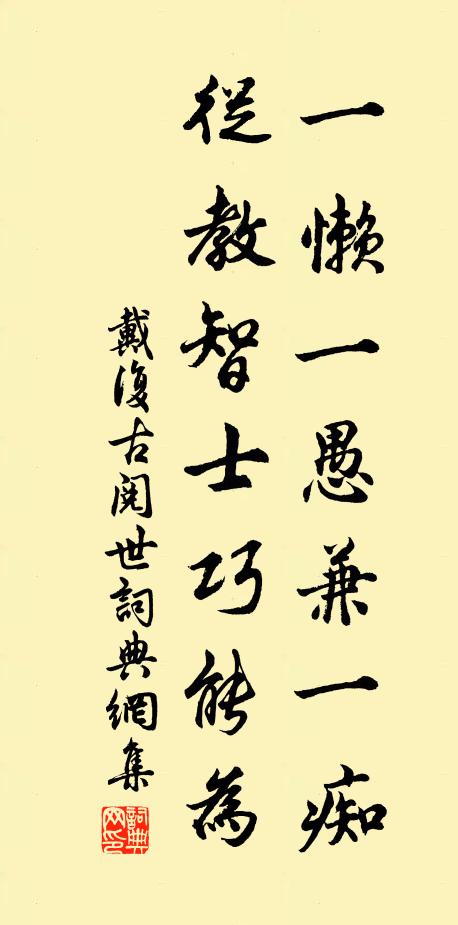 一懶一愚兼一痴
從教智士巧能為
戴復古閱世詞典網集
詞典網印